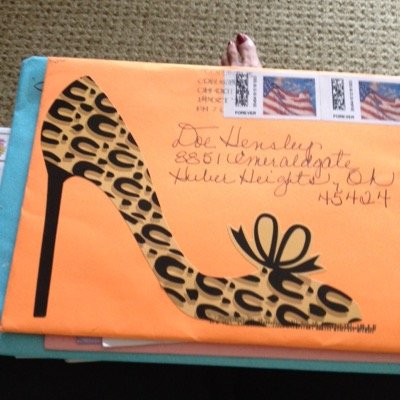 FOREVER
FOREVER
Doe Hensley
8851 Emeraldgate
Huber Heights, OH
45424